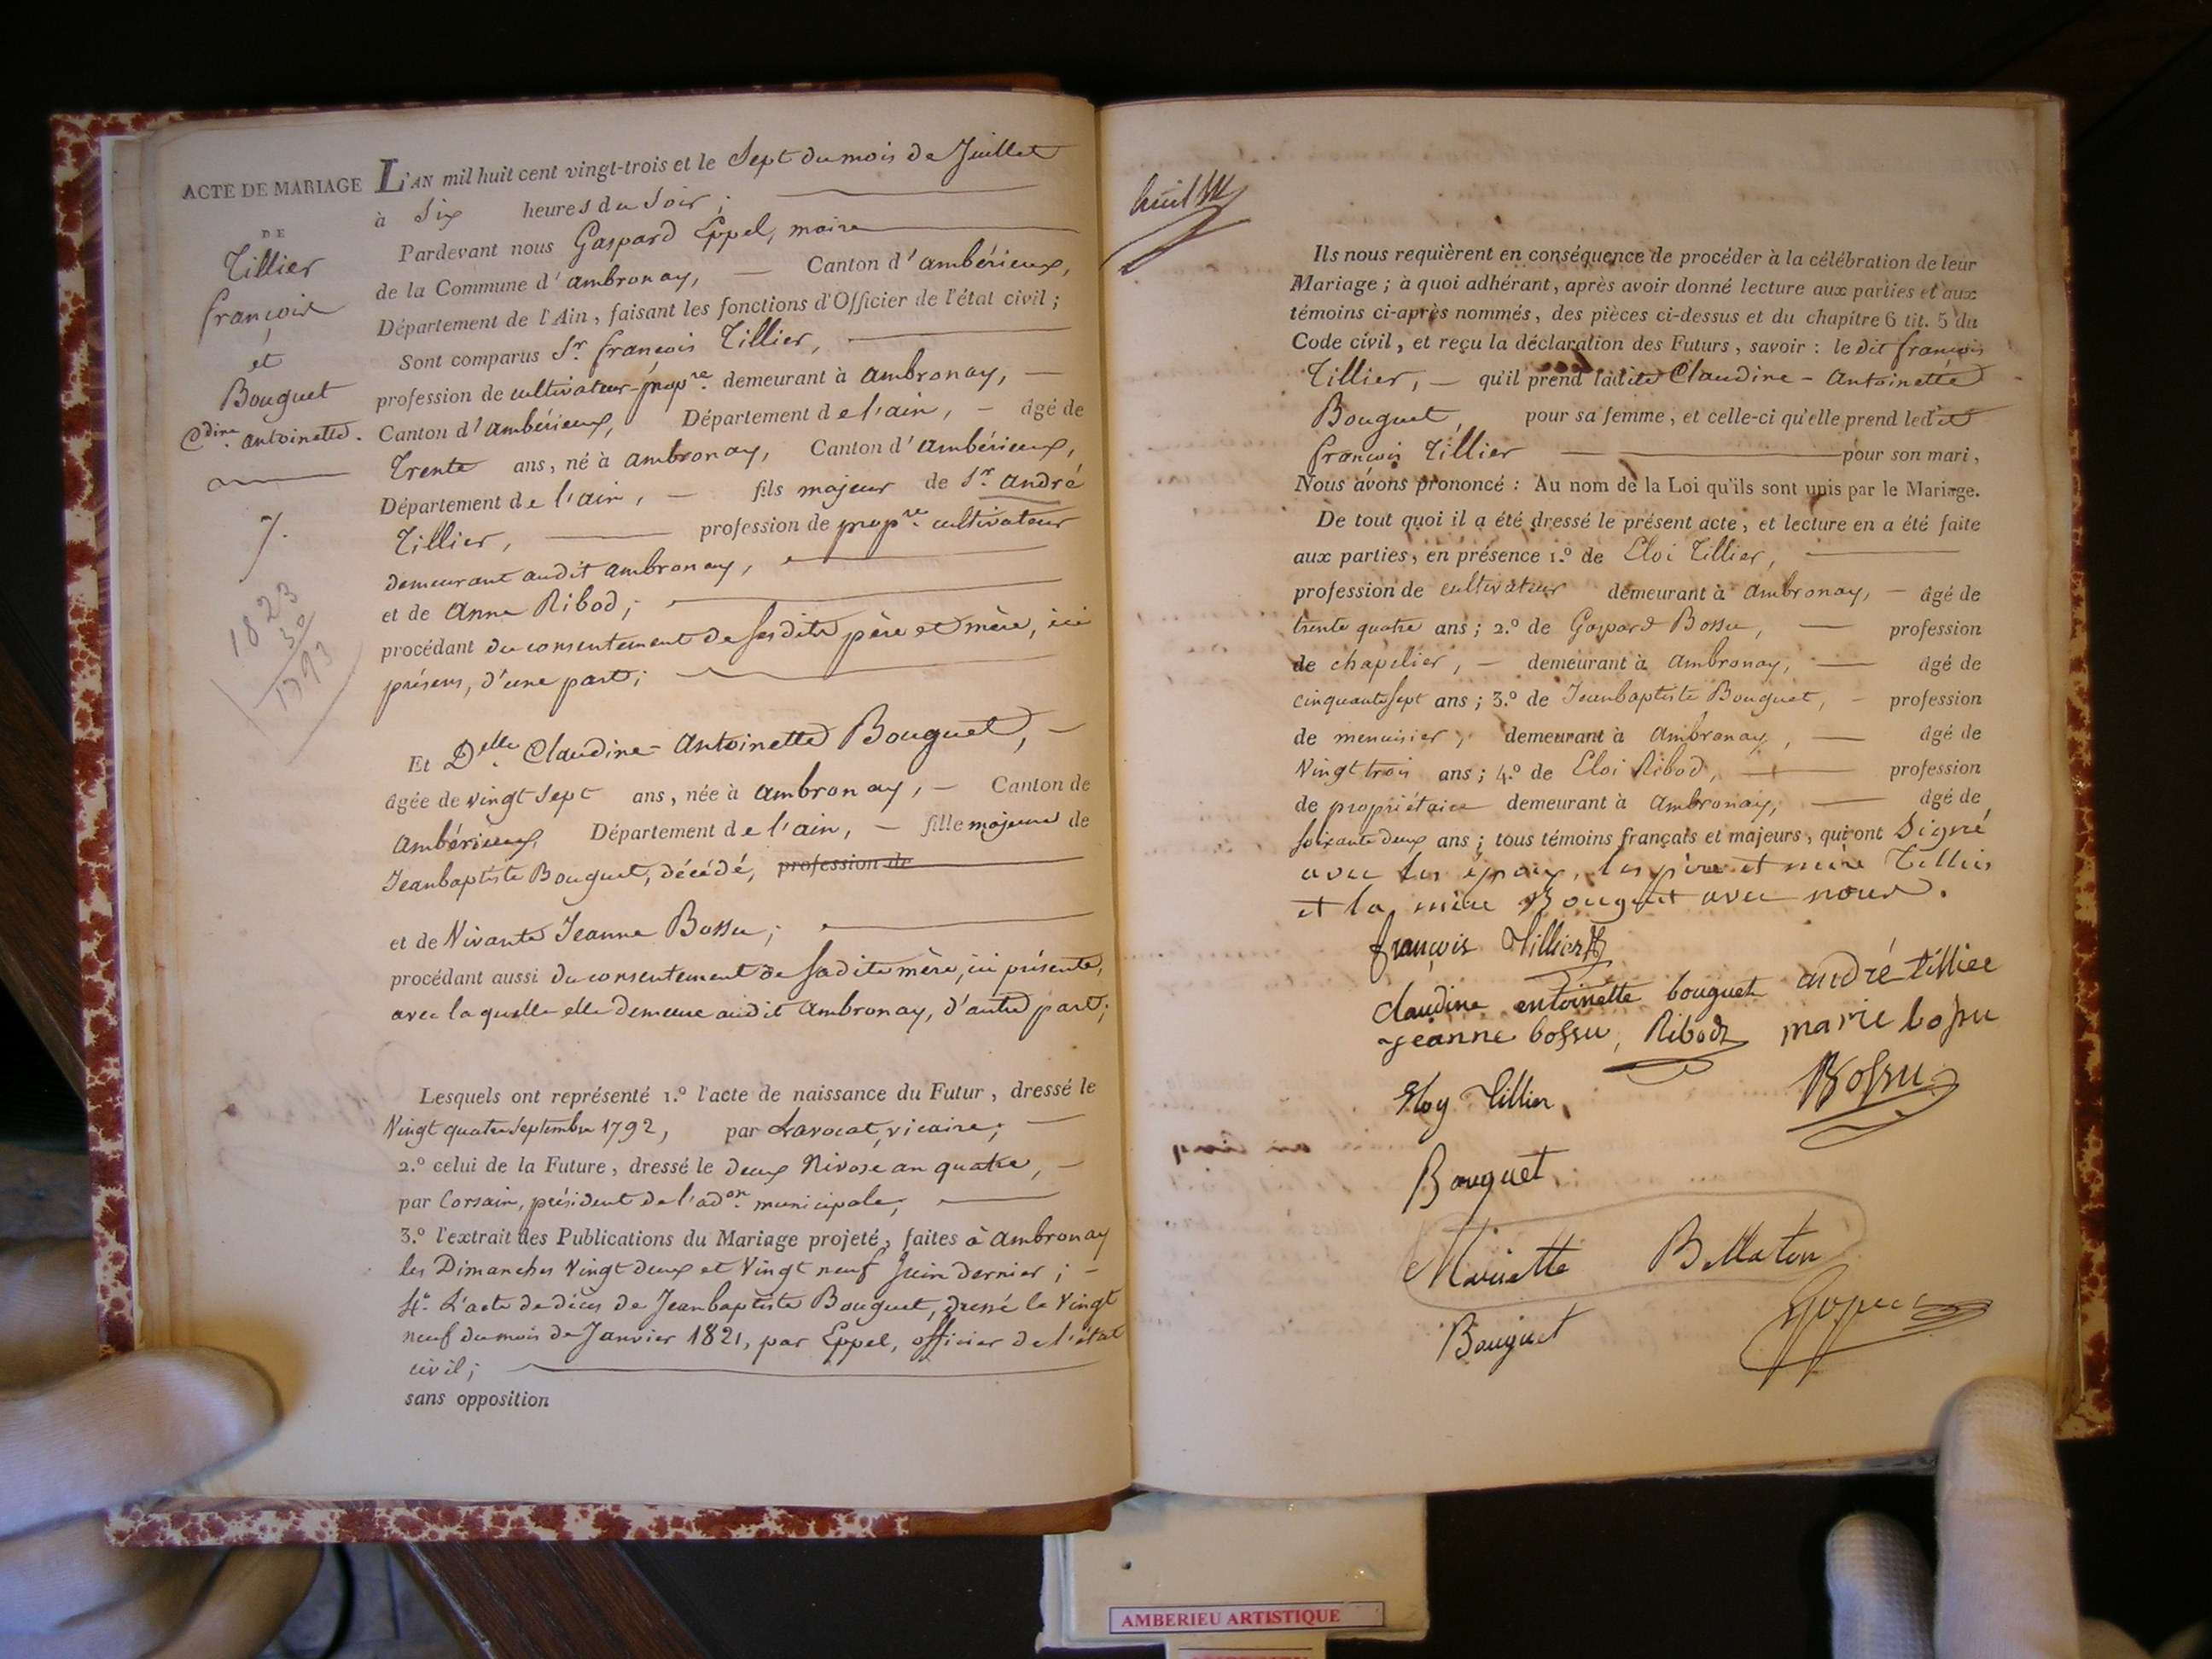 ACTE DE MARIAGE
DE
Tillier
françois
et
Bouquet
Cdine. antoinette.
7.
1823
30
1793
L'AN mil huit cent vingt-trois et le Sept du mois de Juillet
à Six heures du Soir ;
Pardevant nous Gaspard Eppel, maire
de la Commune d'ambronay, — Canton d'ambérieux,
Département de l'Ain, faisant les fonctions d'Officier de l'état civil ;
Sont comparus Sr. françois Tillier,
profession de cultivateur-propre. demeurant à ambronay, —
Canton d'ambérieux, Département de l'ain, — âgé de
Trente ans, né à ambronay, Canton d'ambérieux,
Département de l'ain, — fils majeur de Sr. andré
Tillier, — profession de propre. cultivateur
demeurant audit ambronay,
et de anne Ribod ;
procédant du consentement de sesdits père et mère, ici
présens, d'une part ;
Et Delle. Claudine-Antoinette Bouquet, —
âgée de vingt Sept ans, née à ambronay, — Canton de
ambérieux, Département de l'ain, — fille majeure de
Jeanbaptiste Bouquet, décédé, profession de
et de Vivante Jeanne Bossu ;
procédant aussi du consentement de sadite mère, ici présente,
avec laquelle elle demeure audit ambronay, d'autre part ;
Lesquels ont représenté 1.º l'acte de naissance du Futur, dressé le
Vingt quatre Septembre 1792, par Lavocat, vicaire ; —
2.º celui de la Future, dressé le deux Nivose an quatre, —
par Corsain, président de l'adon. municipale ;
3.º l'extrait des Publications du Mariage projeté, faites à ambronay
les Dimanches Vingt deux et Vingt neuf Juin dernier ; —
4º. L'acte de décès de Jeanbaptiste Bouquet, dressé le Vingt
neuf du mois de Janvier 1821, par Eppel, officier de l'état
civil ;
sans opposition
huit
Ils nous requièrent en conséquence de procéder à la célébration de leur
Mariage ; à quoi adhérant, après avoir donné lecture aux parties et aux
témoins ci-après nommés, des pièces ci-dessus et du chapitre 6 tit. 5 du
Code civil, et reçu la déclaration des Futurs, savoir : le dit françois
Tillier, — qu'il prend ladite Claudine-Antoinette
Bouquet, pour sa femme, et celle-ci qu'elle prend ledit
françois Tillier — pour son mari,
Nous avons prononcé : Au nom de la Loi qu'ils sont unis par le Mariage.
De tout quoi il a été dressé le présent acte, et lecture en a été faite
aux parties, en présence 1.º de Eloi Tillier,
profession de cultivateur demeurant à ambronay, — âgé de
trente quatre ans ; 2.º de Gaspard Bossu, — profession
de chapelier, — demeurant à ambronay, — âgé de
cinquante sept ans ; 3.º de Jeanbaptiste Bouquet, — profession
de menuisier, demeurant à ambronay, — âgé de
Vingt trois ans ; 4.º de Eloi Ribod, — profession
de propriétaire demeurant à ambronay, — âgé de
soixante deux ans ; tous témoins français et majeurs, qui ont Signé
avec les époux, les père et mère Tillier
et la mère Bouquet avec nous.
françois Tillier
claudine entoinette bouquet andré tillier
jeanne bossu, Ribod marie bossu
Eloy Tillier, Bossu
Bouquet
Mariette Bellaton
Bouquet
AMBERIEU ARTISTIQUE